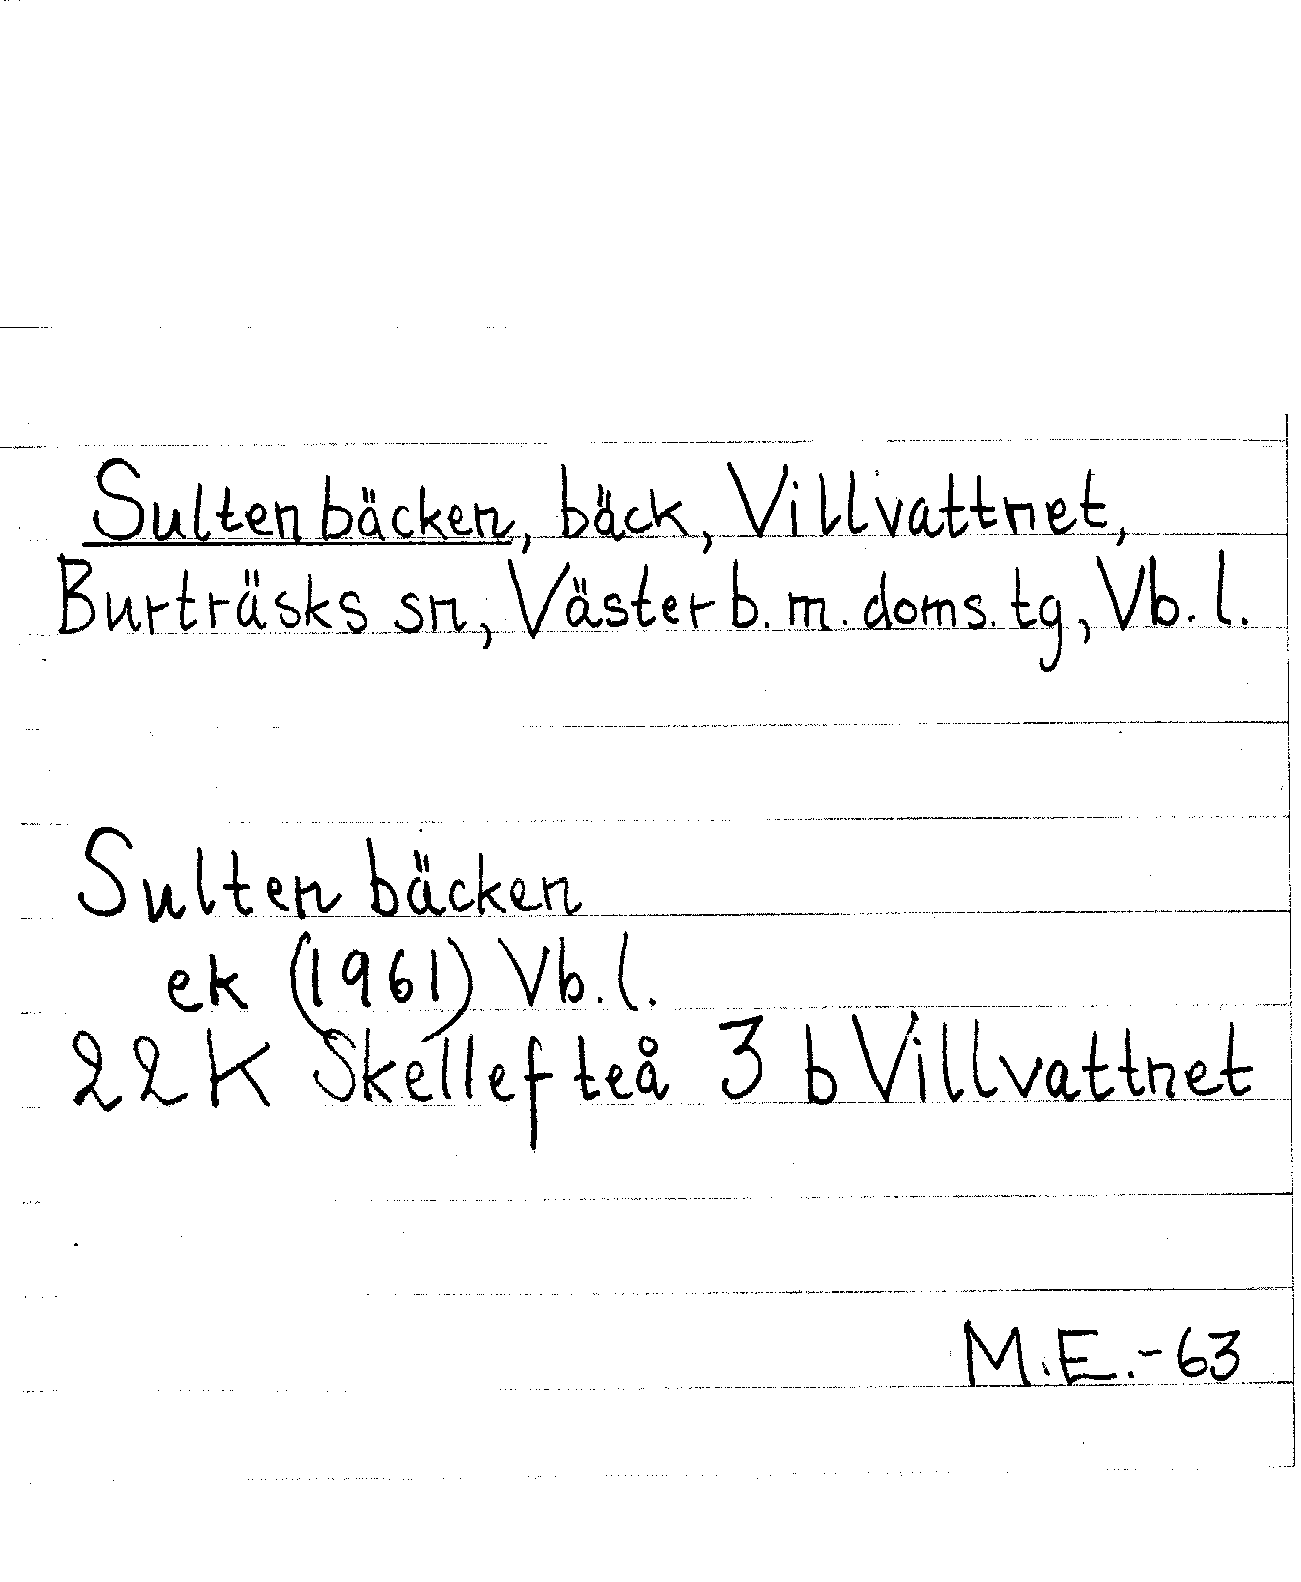 Sultenbäcken, bäck, Villvattnet,
Burträsks sn, Västerb. m. doms. tg, Vb. l.
Sultenbäcken
ek (1961) Vb. l.
22 K Skellefteå 3 b Villvattnet
M.E.-63